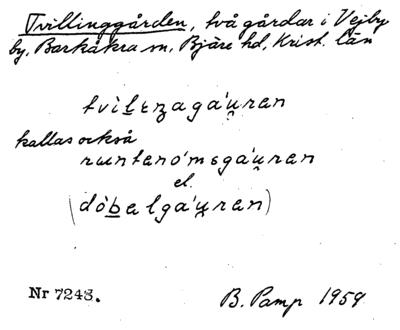 Tvillinggården, två gårdar i Vejby
by, Barkåkra sn, Bjäre hd, Krist. län
tvilɛnagáu̯ran
kallas också
rɯntenómsgáu̯ran
el.
(dóbelgáu̯ran)
Nr 7248.
B. Pamp 1959